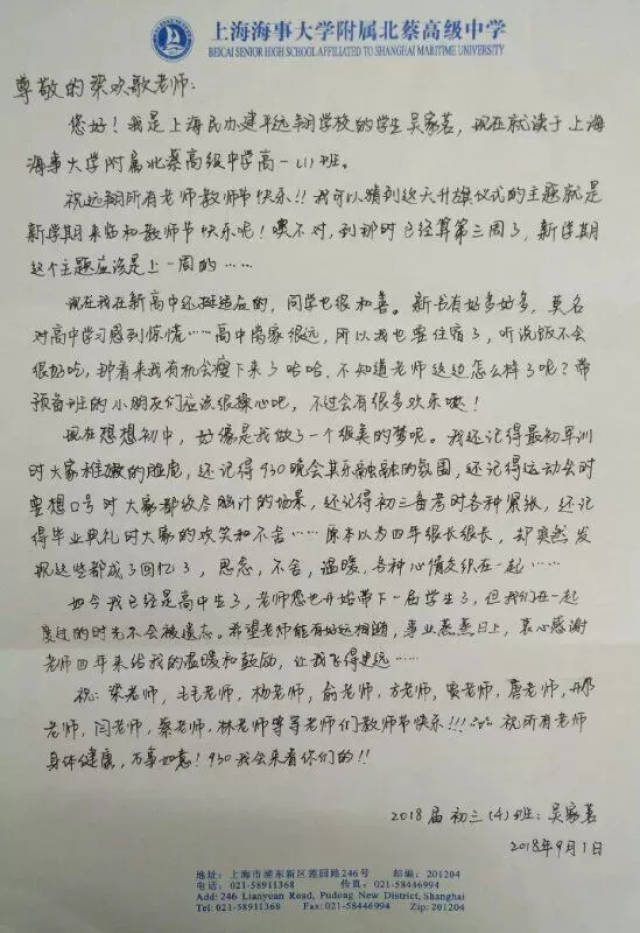 上海海事大学附属北蔡高级中学
BEICAI SENIOR HIGH SCHOOL AFFILIATED TO SHANGHAI MARITIME UNIVERSITY
尊敬的梁欢歌老师:
您好！我是上海民办建平远翔学校的学生吴家茗，现在就读于上海
海事大学附属北蔡高级中学高一(1)班。
祝远翔所有老师教师节快乐!!我可以猜到这天升旗仪式的主题就是
新学期来临和教师节快乐呢！噢不对，到那时已经算第三周了，新学期
这个主题应该是上一周的……
现在我在新高中还挺适应的，同学也很和善。新书有好多好多，莫名
对高中学习感到惊慌……高中离家很远，所以我也要住宿了，听说饭不会
很好吃，看来我有机会瘦下来了哈哈。不知道老师这边怎么样了呢？带
预备班的小朋友们应该很操心吧，不过会有很多欢乐噢！
现在想想初中，好像是我做了一个很美的梦呢。我还记得最初军训
时大家稚嫩的脸庞，还记得930晚会其乐融融的氛围，还记得运动会时
要想口号时大家都绞尽脑汁的场景，还记得初三备考时各种紧张，还记
得毕业典礼时大家的欢笑和不舍……原本以为四年很长很长，却突然发
现这些都成了回忆了，思念，不舍，温暖，各种心情交织在一起……
如今我已经是高中生了，老师您也开始带下一届学生了，但我们在一起
度过的时光不会被遗忘。希望老师能有好运相随，事业蒸蒸日上，衷心感谢
老师四年来给我的温暖和鼓励，让我飞得更远……
祝：梁老师，毛毛老师，杨老师，俞老师，方老师，窦老师，唐老师，邢
老师，闫老师，蔡老师，林老师等等老师们教师节快乐!!!祝所有老师
身体健康，万事如意！930我会来看你们的!!
2018届初三(4)班：吴家茗
2018年9月1日
地址：上海市浦东新区莲园路246号 邮编：201204
电话：021-58911368 传真：021-58446994
Add: 246 Lianyuan Road, Pudong New District, Shanghai
Tel: 021-58911368 Fax: 021-58446994 Zip: 201204